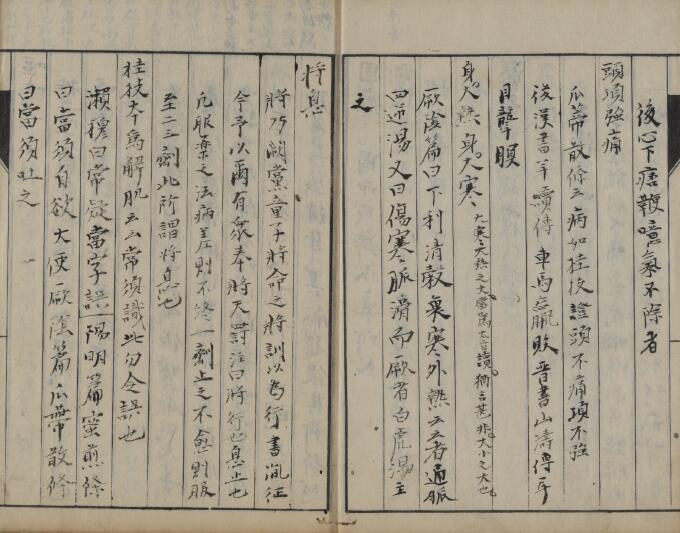 後心下痞鞕噫氣不除者
頭項強痛
瓜蒂散條云病如桂枝證頭不痛項不強
後漢書羊續傳車馬羸敗晉書山濤傳耳
目聾瞑
身大熱身大寒大寒大熱之大當為太音讀猶言甚非大小之大也
厥陰篇曰下利清穀裏寒外熱云云者通脈
四逆湯又曰傷寒脈滑而厥者白虎湯主
之
將息
將ハ闕黨童子將命之將訓以為行書胤征
今予以爾有眾奉將天罰注曰將行也息止也
凡服藥之法病差則不終一劑止之不愈則服
至二三劑此所謂將息也
桂枝本為解肌云云常須識此勿令誤也
瀨穆曰常疑當字誤陽明篇蜜煎條
曰當須自欲大便厥陰篇瓜蒂散條
曰當須吐之